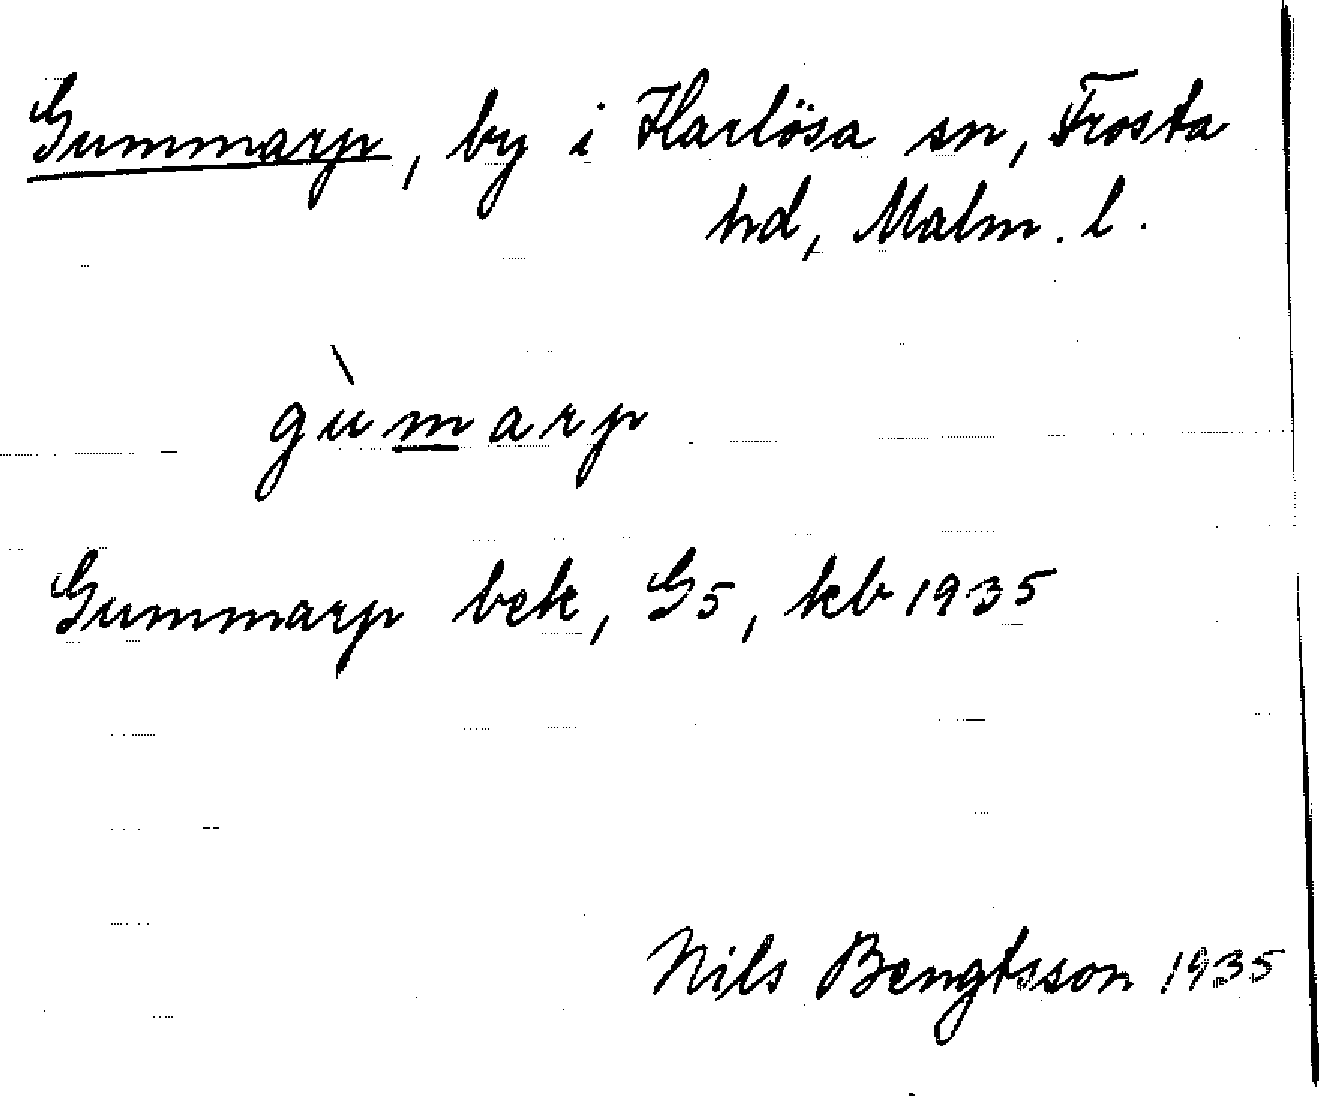 Gummarp, by i Harlösa sn, Frosta
hd, Malm. l.
gùmarp
Gummarp bek, G5, kb 1935
Nils Bengtsson 1935